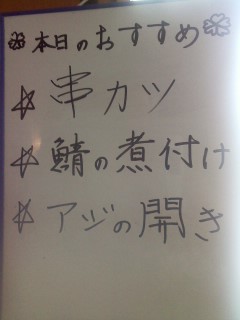 本日のおすすめ
☆串カツ
☆鯖の煮付け
☆アジの開き